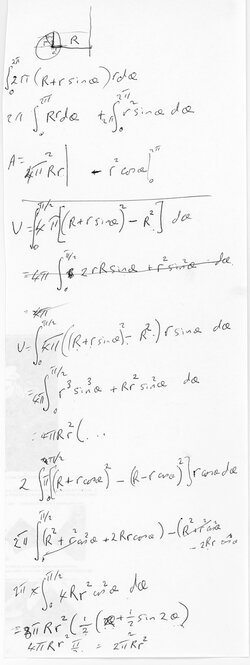 R
∫₀^{2π} 2π(R+r sinθ) r dθ
2π ∫₀^{2π} Rr dθ + 2π ∫₀^{2π} r² sinθ dθ
A = 4π²Rr | - r² cosθ |₀^{2π}
V = ∫₀^{π/2} 4π[(R+r sinθ)² - R²] dθ
= 4π ∫₀^{π/2} 2rR sinθ + r² sin²θ dθ
= 4π
V = ∫₀^{π/2} 4π((R+r sinθ)² - R²) r sinθ dθ
= 4π ∫₀^{π/2} r³ sin³θ + Rr² sin²θ dθ
= 4πRr² (...
2 ∫₀^{π/2} π[(R+r cosθ)² - (R-r cosθ)²] r cosθ dθ
2π ∫₀^{π/2} (R² + r² cos²θ + 2Rr cosθ) - (R² + r² cos²θ
- 2Rr cosθ)
2π × ∫₀^{π/2} 4Rr² cos²θ dθ
= 8πRr² (½ (θ + ½ sin 2θ)
4πRr² π/2 = 2π²Rr²